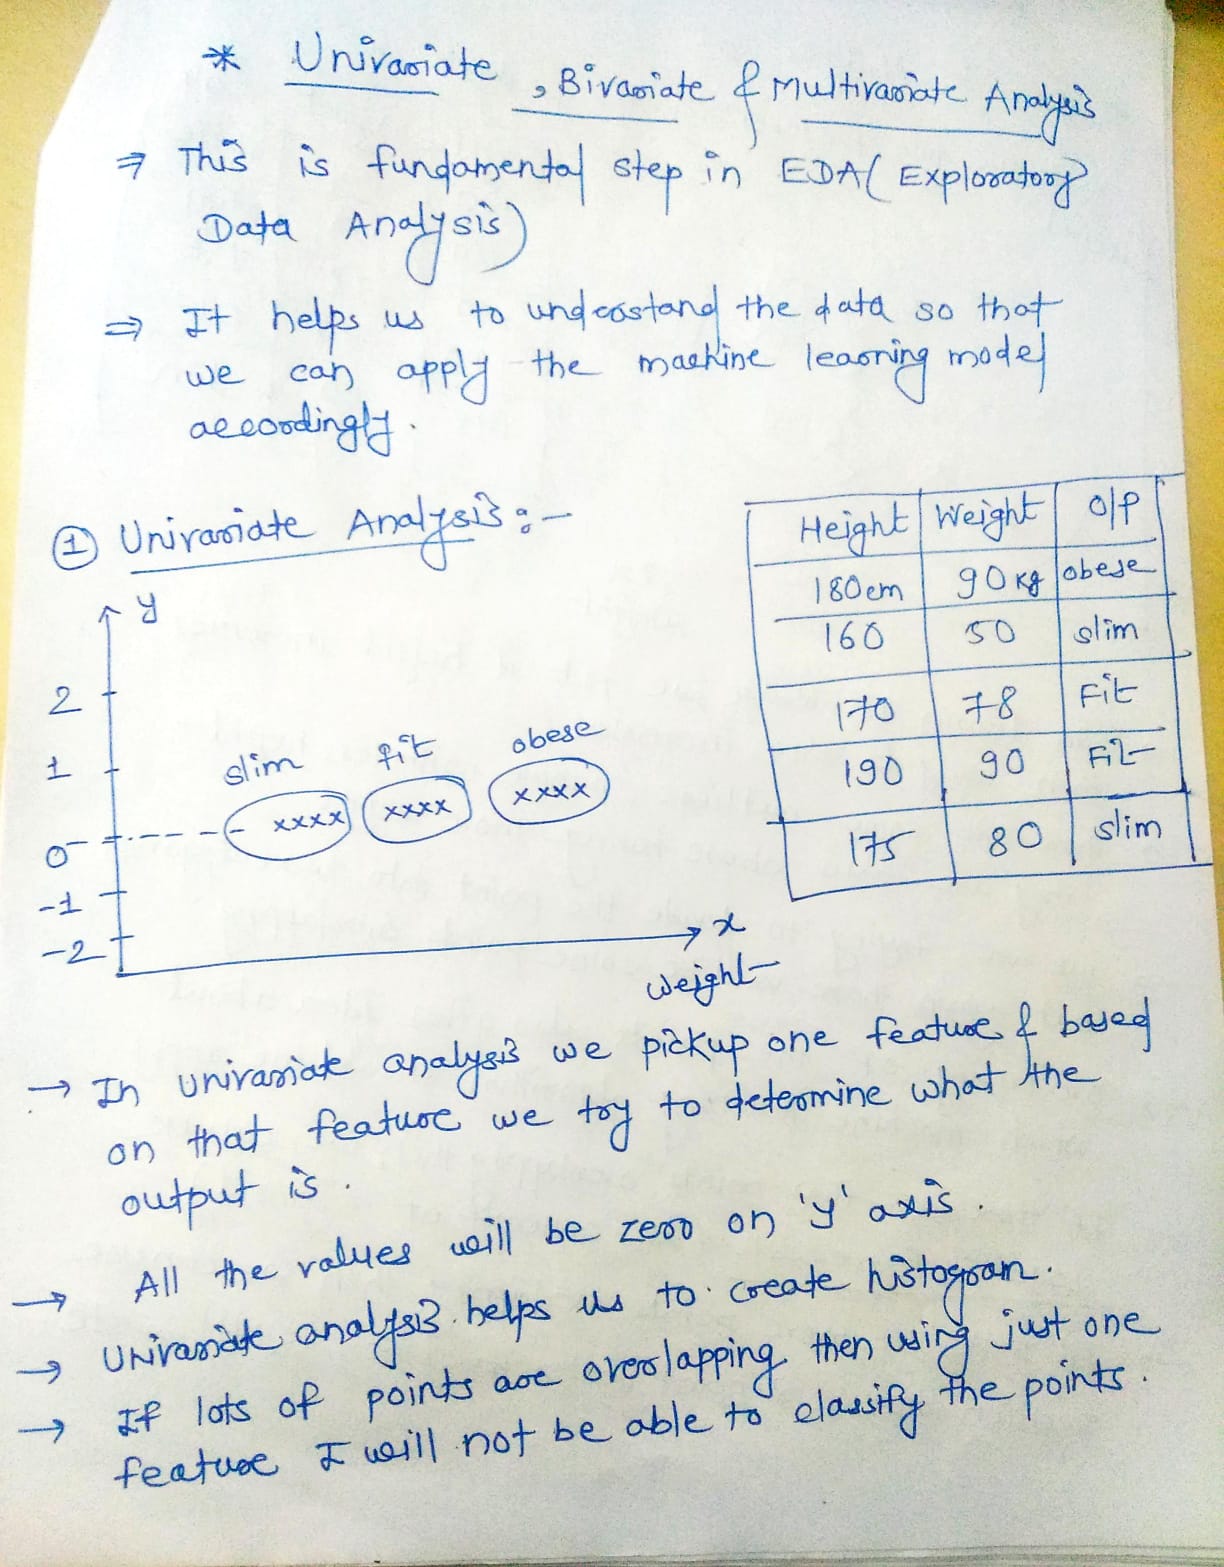 * Univariate, Bivariate & Multivariate Analysis
⇒ This is fundamental step in EDA( Exploratory
Data Analysis)
⇒ It helps us to understand the data so that
we can apply the machine learning model
accordingly.
① Univariate Analysis:-
Height Weight O/P
180cm 90kg obese
160 50 slim
170 78 Fit
190 90 Fit
175 80 slim
y
2
1
0
-1
-2
slim fit obese
xxxx xxxx xxxx
x
weight
→ In univariate analysis we pickup one feature & based
on that feature we try to determine what the
output is.
→ All the values will be zero on 'y' axis.
→ Univariate analysis helps us to create histogram.
→ If lots of points are overlapping then using just one
feature I will not be able to classify the points.